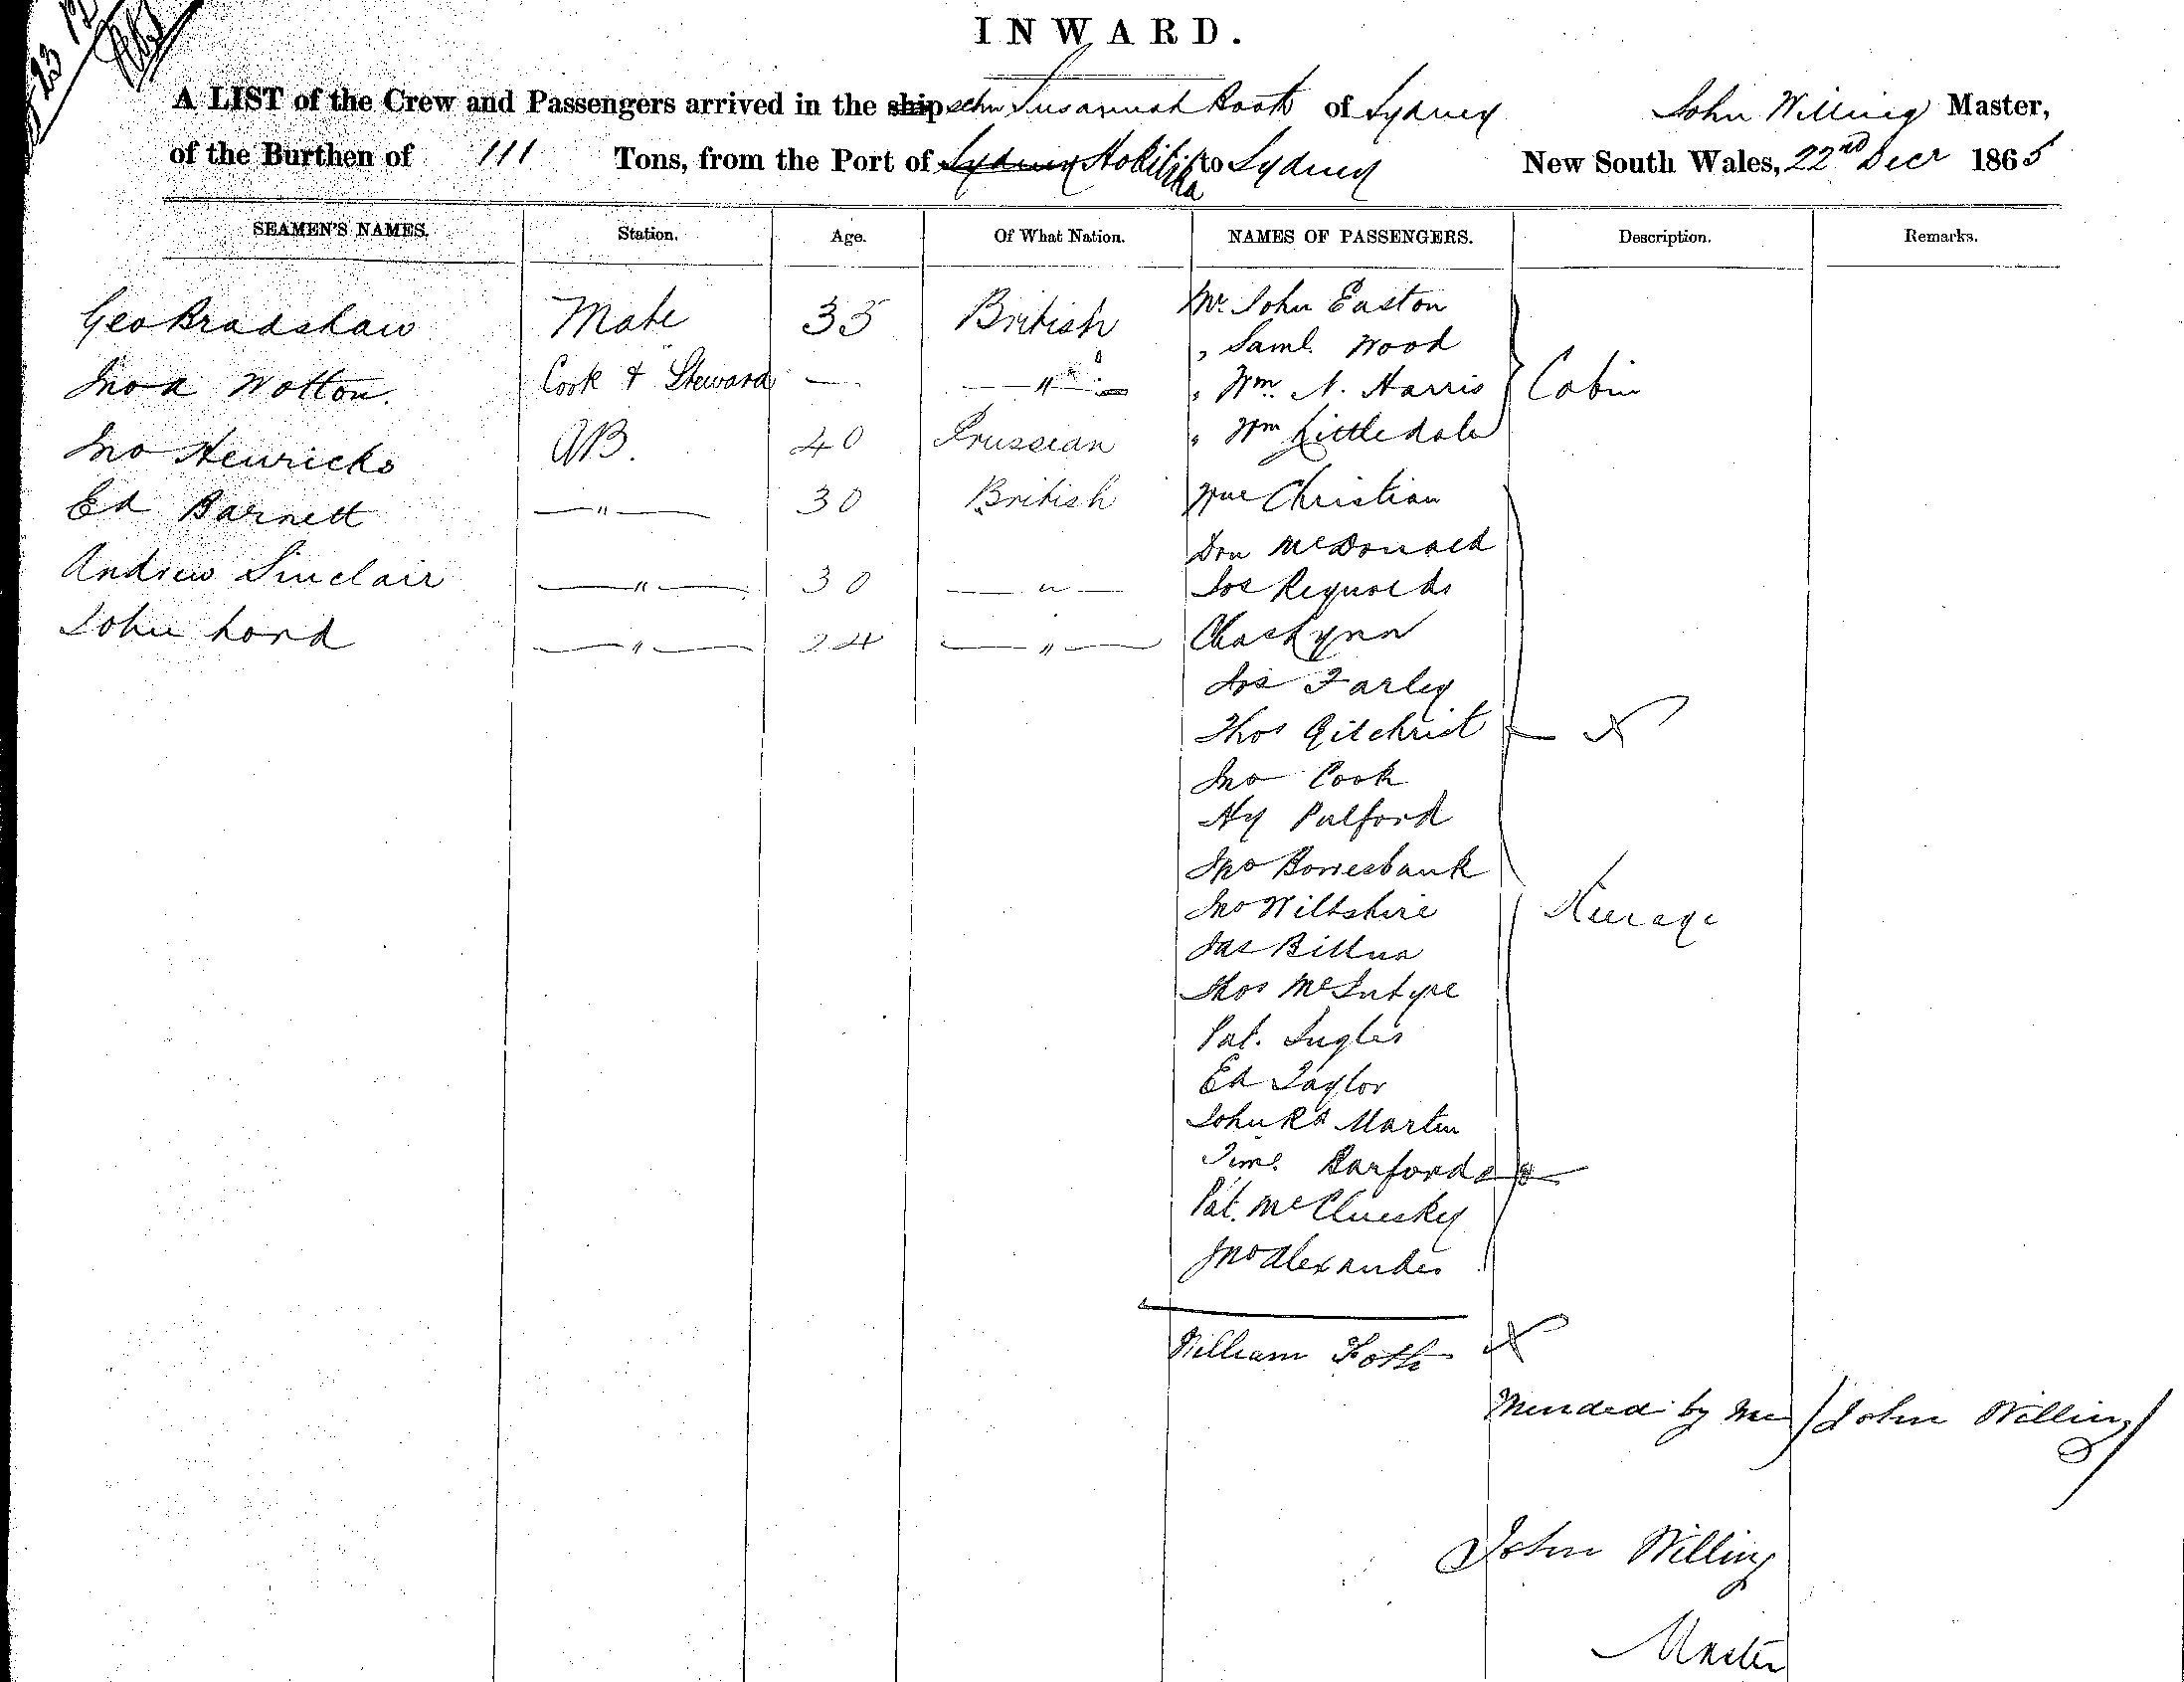 INWARD.
A LIST of the Crew and Passengers arrived in the ship schr Susannah Booth of Sydney John Willing Master,
of the Burthen of 111 Tons, from the Port of Sydney Hokitika to Sydney New South Wales, 22nd Decr 1865
SEAMEN'S NAMES. Station. Age. Of What Nation. NAMES OF PASSENGERS. Description. Remarks.
Geo Bradshaw Mate 35 British Mr. John Easton
" Saml. Wood
Jno A Wotton. Cook & Steward — —"— " Wm. N. Harris Cabin
Jno Henricks AB. 40 Prussian " Wm Littledale
Ed Barnett —"— 30 British Wm Christian
Don McDonald
Andrew Sinclair —"— 30 —"— Jos Reynolds
John Lord —"— 24 —"— Chas Lynn
Jos Farley
Thos Gilchrist X
Jno Cook
Hy Pulford
Jno Bowesbank
Jno Wiltshire Steerage
Jas
Thos McIntyre
Pat. Inglis
Ed Taylor
John Rd Martin
Barford
Pat. McCluskey
Jno Alexander
William X
by me / John Willing /
John Willing
Master